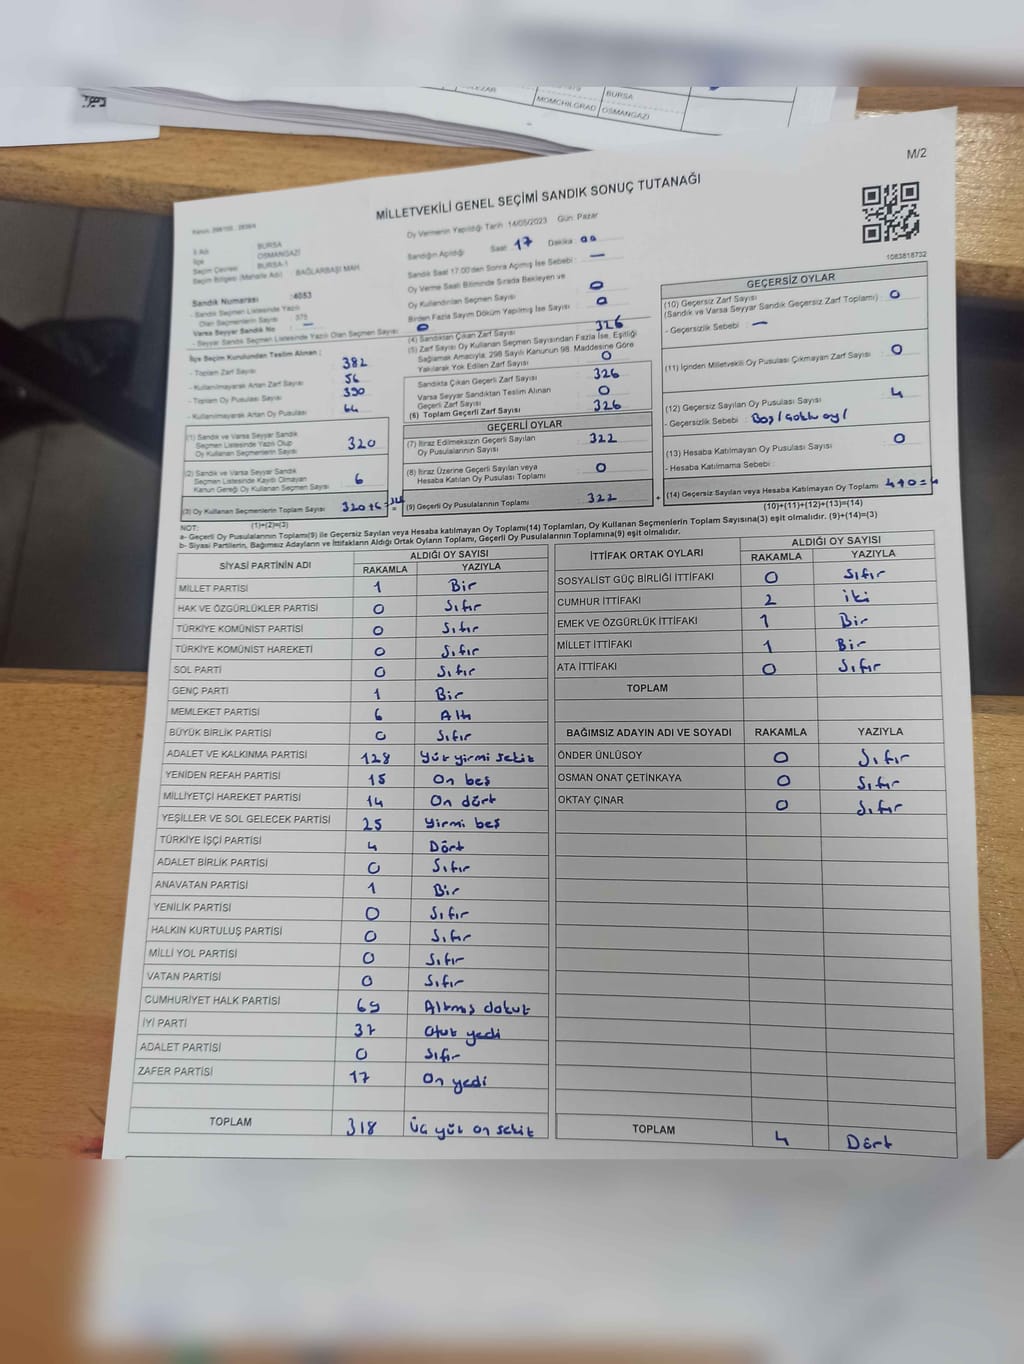 BURSA
MOMCHILGRAD OSMANGAZI
M/2
MİLLETVEKİLİ GENEL SEÇİMİ SANDIK SONUÇ TUTANAĞI
İl Adı BURSA
İlçe OSMANGAZI
Seçim Çevresi BURSA-1
Seçim Bölgesi (Mahalle Adı) : BAĞLARBAŞI MAH.
Sandık Numarası :4053
- Sandık Seçmen Listesinde Yazılı
Olan Seçmenlerin Sayısı : 375
Varsa Seyyar Sandık No —
- Seyyar Sandık Seçmen Listesinde Yazılı Olan Seçmen Sayısı : 0
Oy Vermenin Yapıldığı Tarih 14/05/2023 Gün: Pazar
Sandığın Açıldığı Saat: 17 Dakika: 00
Sandık Saat 17.00'den Sonra Açılmış İse Sebebi : —
Oy Verme Saati Bitiminde Sırada Bekleyen ve
Oy Kullandırılan Seçmen Sayısı : 0
Birden Fazla Sayım Döküm Yapılmış İse Sayısı : 0
1083818732
İlçe Seçim Kurulundan Teslim Alınan ;
- Toplam Zarf Sayısı : 382
- Kullanılmayarak Artan Zarf Sayısı : 56
- Toplam Oy Pusulası Sayısı : 390
- Kullanılmayarak Artan Oy Pusulası : 64
(1) Sandık ve Varsa Seyyar Sandık
Seçmen Listesinde Yazılı Olup
Oy Kullanan Seçmenlerin Sayısı 320
(2) Sandık ve Varsa Seyyar Sandık
Seçmen Listesinde Kayıtlı Olmayan
Kanun Gereği Oy Kullanan Seçmen Sayısı 6
(3) Oy Kullanan Seçmenlerin Toplam Sayısı 320+6=326
(1)+(2)=(3)
(4) Sandıktan Çıkan Zarf Sayısı 326
(5) Zarf Sayısı Oy Kullanan Seçmen Sayısından Fazla İse, Eşitliği
Sağlamak Amacıyla, 298 Sayılı Kanunun 98. Maddesine Göre
Yakılarak Yok Edilen Zarf Sayısı 0
Sandıkta Çıkan Geçerli Zarf Sayısı 326
Varsa Seyyar Sandıktan Teslim Alınan
Geçerli Zarf Sayısı 0
(6) Toplam Geçerli Zarf Sayısı 326
GEÇERLİ OYLAR
(7) İtiraz Edilmeksizin Geçerli Sayılan
Oy Pusulalarının Sayısı 322
(8) İtiraz Üzerine Geçerli Sayılan veya
Hesaba Katılan Oy Pusulası Toplamı 0
= (9) Geçerli Oy Pusulalarının Toplamı 322
GEÇERSİZ OYLAR
(10) Geçersiz Zarf Sayısı
(Sandık ve Varsa Seyyar Sandık Geçersiz Zarf Toplamı) 0
- Geçersizlik Sebebi : —
(11) İçinden Milletvekili Oy Pusulası Çıkmayan Zarf Sayısı 0
(12) Geçersiz Sayılan Oy Pusulası Sayısı 4
- Geçersizlik Sebebi : Boş/
(13) Hesaba Katılmayan Oy Pusulası Sayısı 0
- Hesaba Katılmama Sebebi :
+ (14) Geçersiz Sayılan veya Hesaba Katılmayan Oy Toplamı 4+0=4
(10)+(11)+(12)+(13)=(14)
NOT:
a- Geçerli Oy Pusulalarının Toplamı(9) ile Geçersiz Sayılan veya Hesaba katılmayan Oy Toplamı(14) Toplamları, Oy Kullanan Seçmenlerin Toplam Sayısına(3) eşit olmalıdır. (9)+(14)=(3)
b- Siyasi Partilerin, Bağımsız Adayların ve İttifakların Aldığı Ortak Oyların Toplamı, Geçerli Oy Pusulalarının Toplamına(9) eşit olmalıdır.
SİYASİ PARTİNİN ADI ALDIĞI OY SAYISI
RAKAMLA YAZIYLA
MİLLET PARTİSİ 1 Bir
HAK VE ÖZGÜRLÜKLER PARTİSİ 0 Sıfır
TÜRKİYE KOMÜNİST PARTİSİ 0 Sıfır
TÜRKİYE KOMÜNİST HAREKETİ 0 Sıfır
SOL PARTİ 0 Sıfır
GENÇ PARTİ 1 Bir
MEMLEKET PARTİSİ 6 Altı
BÜYÜK BİRLİK PARTİSİ 0 Sıfır
ADALET VE KALKINMA PARTİSİ 128 Yüz yirmi sekiz
YENİDEN REFAH PARTİSİ 15 On beş
MİLLİYETÇİ HAREKET PARTİSİ 14 On dört
YEŞİLLER VE SOL GELECEK PARTİSİ 25 Yirmi beş
TÜRKİYE İŞÇİ PARTİSİ 4 Dört
ADALET BİRLİK PARTİSİ 0 Sıfır
ANAVATAN PARTİSİ 1 Bir
YENİLİK PARTİSİ 0 Sıfır
HALKIN KURTULUŞ PARTİSİ 0 Sıfır
MİLLİ YOL PARTİSİ 0 Sıfır
VATAN PARTİSİ 0 Sıfır
CUMHURİYET HALK PARTİSİ 69 Altmış dokuz
İYİ PARTİ 37 Otuz yedi
ADALET PARTİSİ 0 Sıfır
ZAFER PARTİSİ 17 On yedi
TOPLAM 318 Üç yüz on sekiz
İTTİFAK ORTAK OYLARI ALDIĞI OY SAYISI
RAKAMLA YAZIYLA
SOSYALİST GÜÇ BİRLİĞİ İTTİFAKI 0 Sıfır
CUMHUR İTTİFAKI 2 iki
EMEK VE ÖZGÜRLÜK İTTİFAKI 1 Bir
MİLLET İTTİFAKI 1 Bir
ATA İTTİFAKI 0 Sıfır
TOPLAM
BAĞIMSIZ ADAYIN ADI VE SOYADI RAKAMLA YAZIYLA
ÖNDER ÜNLÜSOY 0 Sıfır
OSMAN ONAT ÇETİNKAYA 0 Sıfır
OKTAY ÇINAR 0 Sıfır
TOPLAM 4 Dört